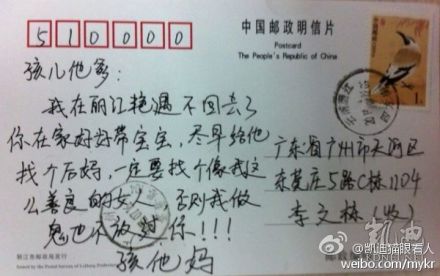 中国邮政明信片
Postcard
The People's Republic of China
510000
孩儿他爹:
我在丽江艳遇不回去了
你在家好好带宝宝，尽早给他
找个后妈，一定要找个像我这
么善良的女人 否则我做
鬼也不放过你!!!
孩他妈
广东省广州市天河区
东莞庄5路C栋1104
李文栋(收)
丽江市邮政局发行
Issued by the Postal Bureau of Lijiang
凯油
@凯迪猫眼看人
weibo.com/mykr